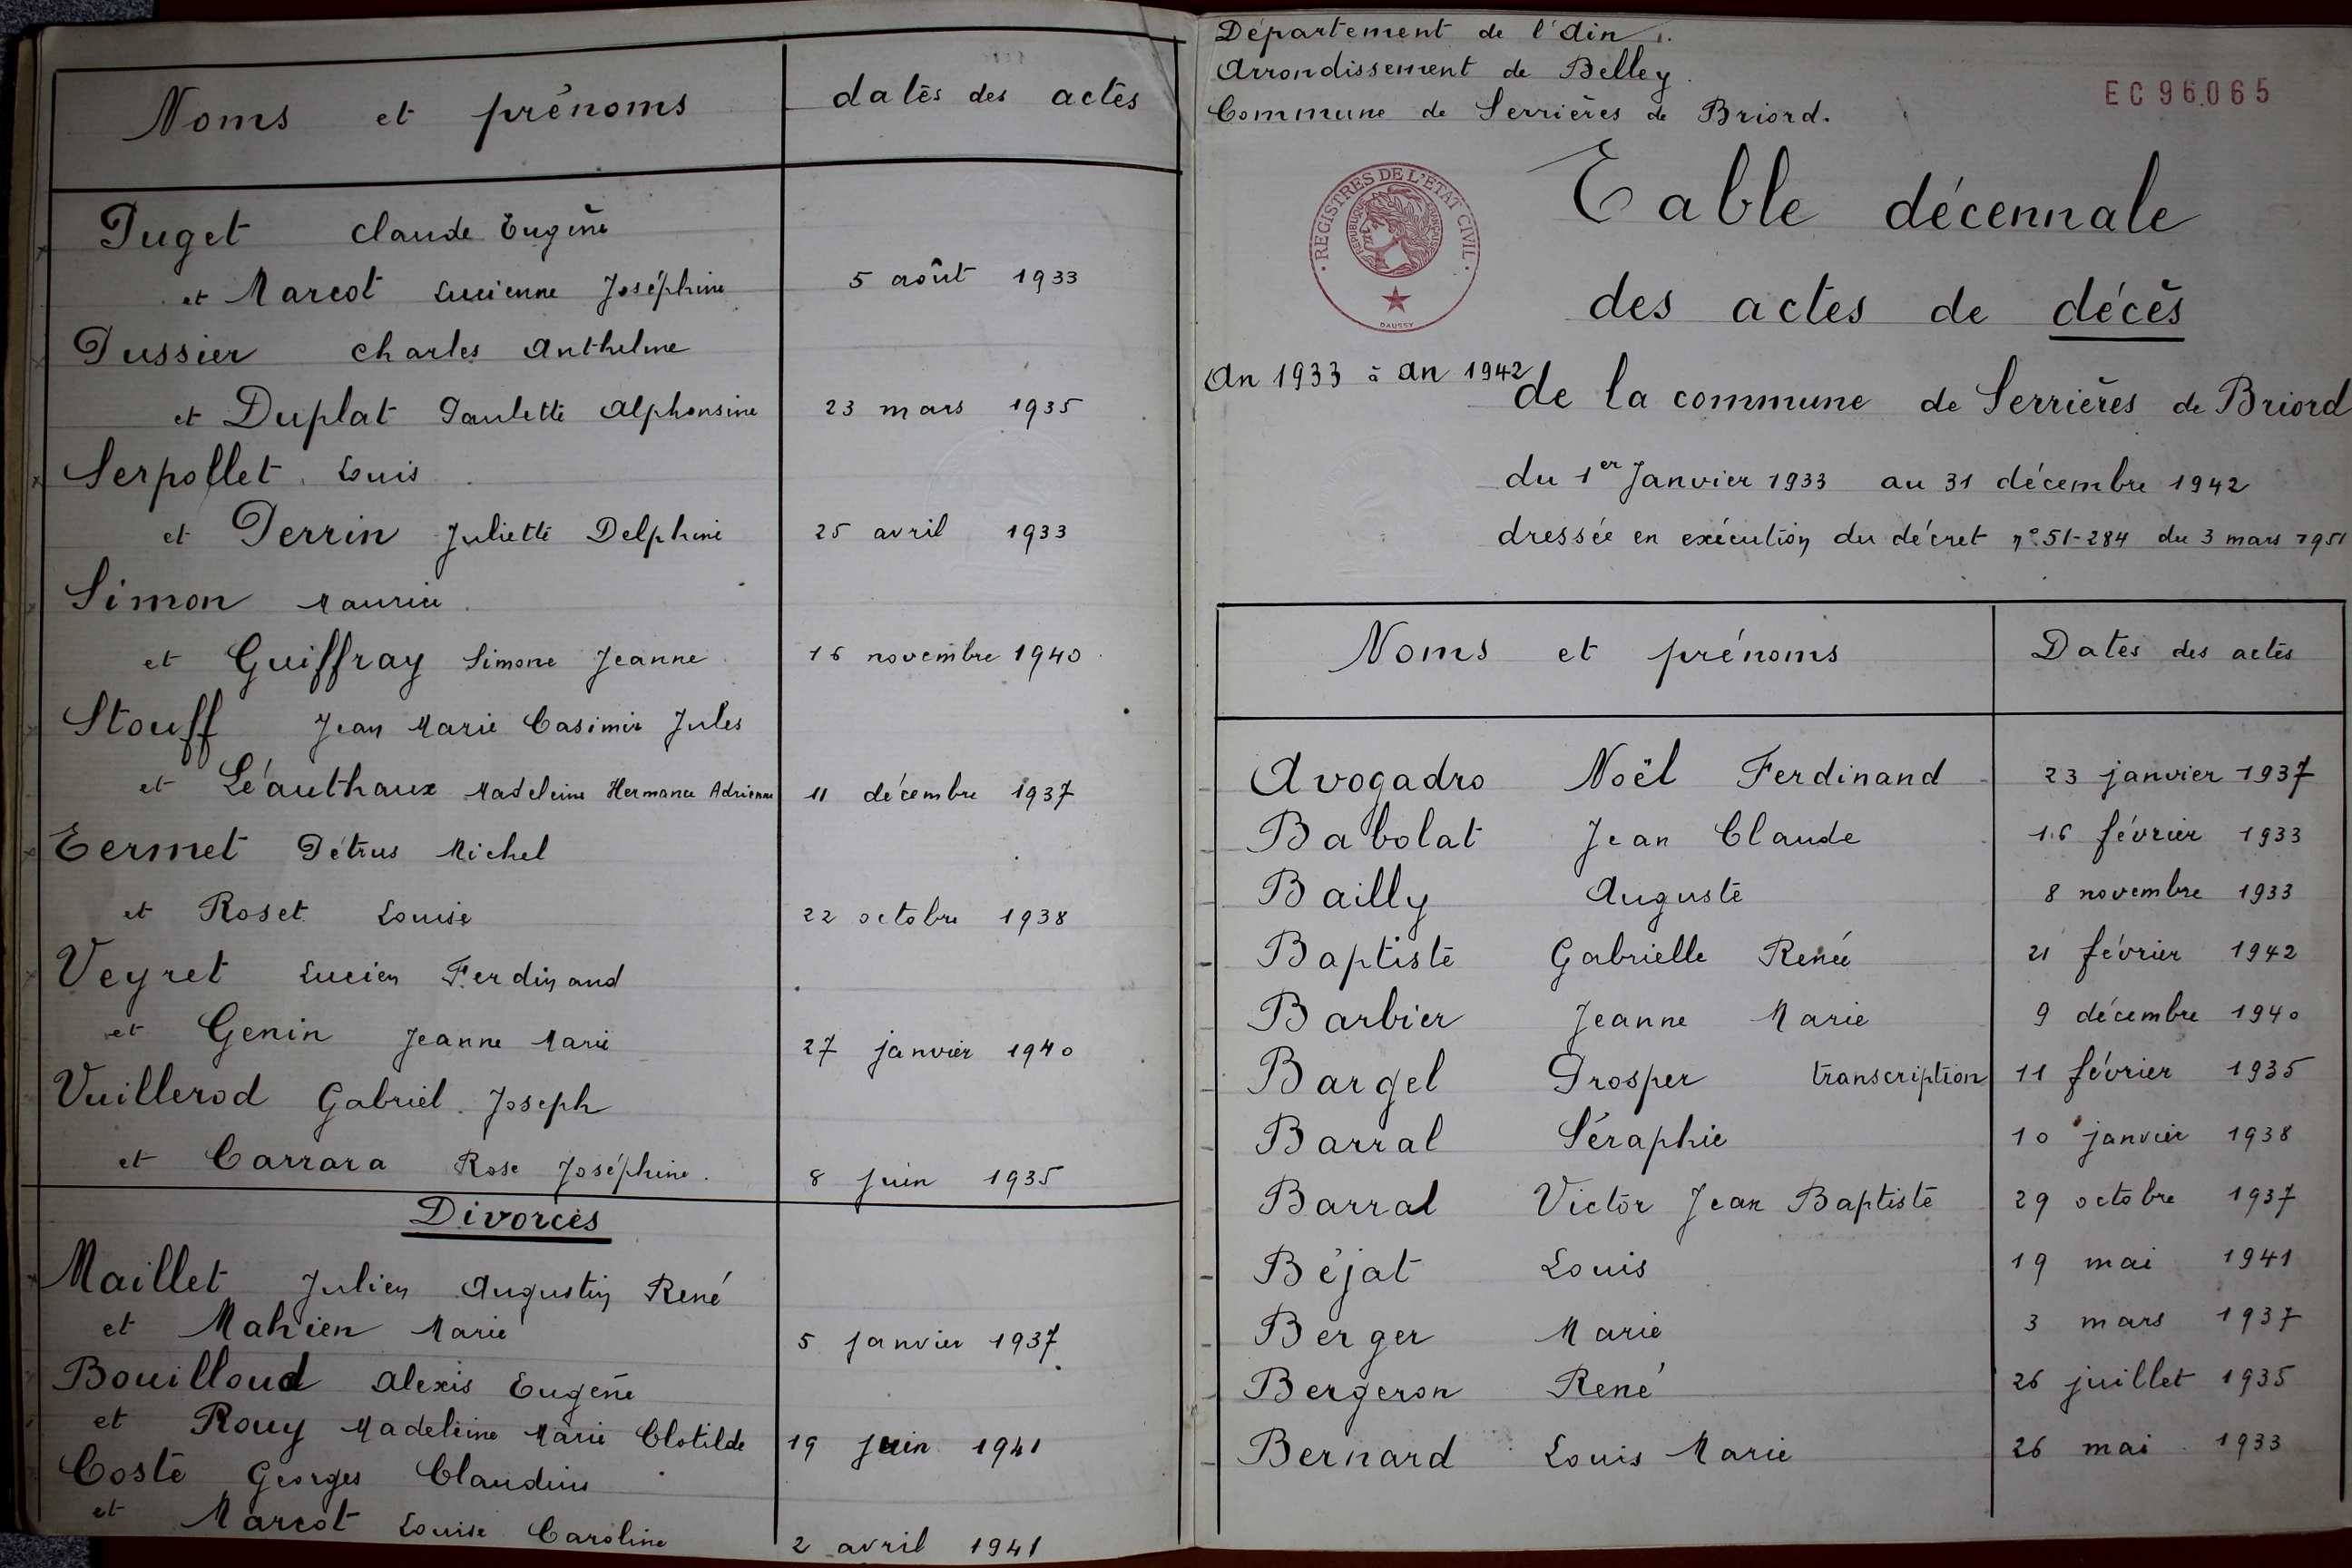 Noms et prénoms dates des actes
Puget Claude Eugène
et Marcot Lucienne Joséphine 5 août 1933
Pussier Charles Anthelme
et Duplat Paulette Alphonsine 23 mars 1935
Serpollet Louis
et Perrin Juliette Delphine 25 avril 1933
Simon Maurice
et Guiffray Simone Jeanne 16 novembre 1940
Stouff Jean Marie Casimir Jules
et Léauthaux Madeleine Hermance Adrienne 11 décembre 1937
Termet Pétrus Michel
et Roset Louise 22 octobre 1938
Veyret Lucien Ferdinand
et Genin Jeanne Marie 27 janvier 1940
Vuillerod Gabriel Joseph
et Carrara Rose Joséphine. 8 juin 1935
Divorces
Maillet Julien Augustin René
et Mahien Marie 5 janvier 1937
Bouilloud Alexis Eugène
et Rouy Madeleine Marie Clotilde 19 juin 1941
Coste Georges Claudius
et Marcot Louise Caroline 2 avril 1941
Département de l'Ain.
Arrondissement de Belley.
Commune de Serrières de Briord.
EC 96.065
REGISTRES DE L'ETAT CIVIL
REPUBLIQUE FRANÇAISE
DAUSSY
Table décennale
des actes de décès
An 1933 à An 1942
de la commune de Serrières de Briord
du 1er Janvier 1933 au 31 décembre 1942
dressée en exécution du décret n° 51-284 du 3 mars 1951
Noms et prénoms Dates des actes
Avogadro Noël Ferdinand 23 janvier 1937
Babolat Jean Claude 16 février 1933
Bailly Auguste 8 novembre 1933
Baptiste Gabrielle Renée 21 février 1942
Barbier Jeanne Marie 9 décembre 1940
Bargel Prosper transcription 11 février 1935
Barral Séraphie 10 janvier 1938
Barral Victor Jean Baptiste 29 octobre 1937
Béjat Louis 19 mai 1941
Berger Marie 3 mars 1937
Bergeron René 26 juillet 1935
Bernard Louis Marie 26 mai 1933